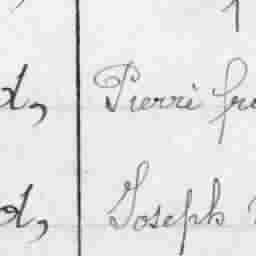 d, Pierre fr
d, Joseph